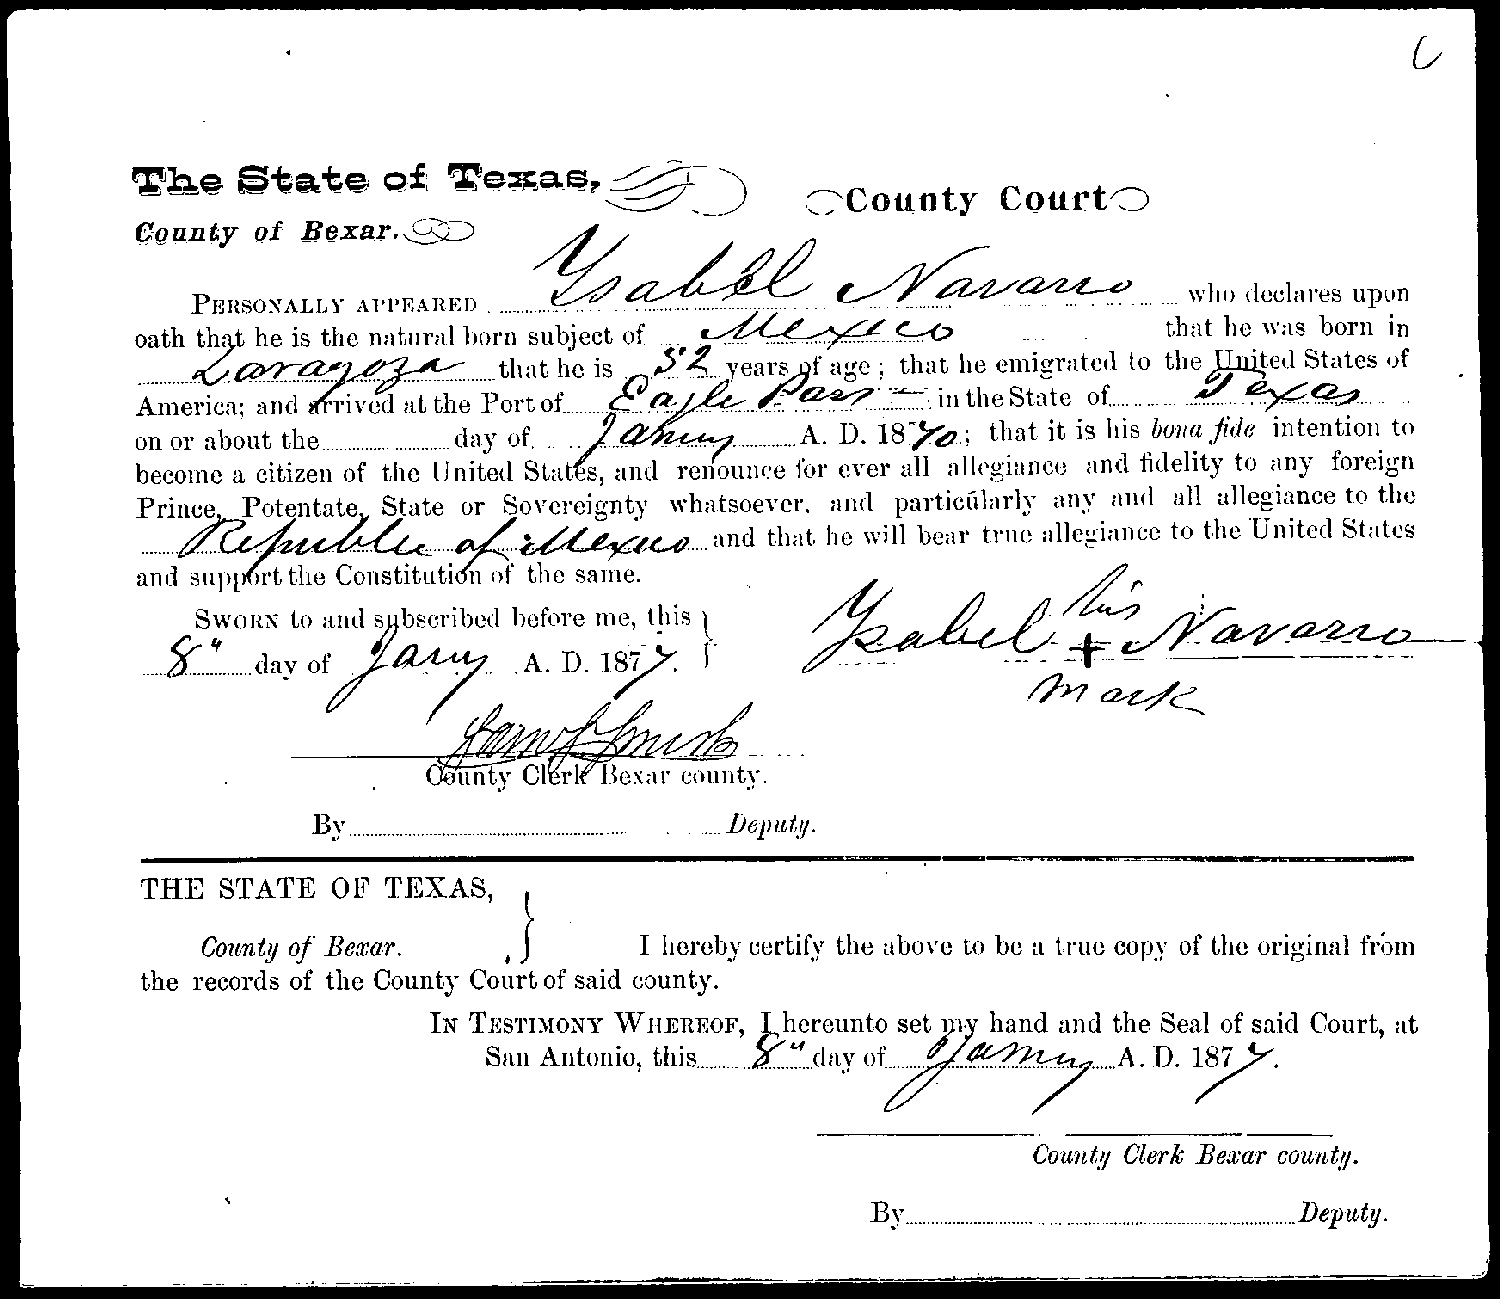 The State of Texas, County Court
County of Bexar.
PERSONALLY APPEARED Ysabel Navarro who declares upon
oath that he is the natural born subject of Mexico that he was born in
Zaragoza that he is 52 years of age; that he emigrated to the United States of
America; and arrived at the Port of Eagle Pass in the State of Texas
on or about the day of Jany A. D. 1870; that it is his bona fide intention to
become a citizen of the United States, and renounce for ever all allegiance and fidelity to any foreign
Prince, Potentate, State or Sovereignty whatsoever, and particularly any and all allegiance to the
Republic of Mexico and that he will bear true allegiance to the United States
and support the Constitution of the same.
SWORN to and subscribed before me, this
8" day of Jany A. D. 1877.
Ysabel his + mark Navarro
Sam S Smith
County Clerk Bexar county.
By Deputy.
THE STATE OF TEXAS,
County of Bexar. I hereby certify the above to be a true copy of the original from
the records of the County Court of said county.
IN TESTIMONY WHEREOF, I hereunto set my hand and the Seal of said Court, at
San Antonio, this 8" day of Jany A. D. 1877.
County Clerk Bexar county.
By Deputy.